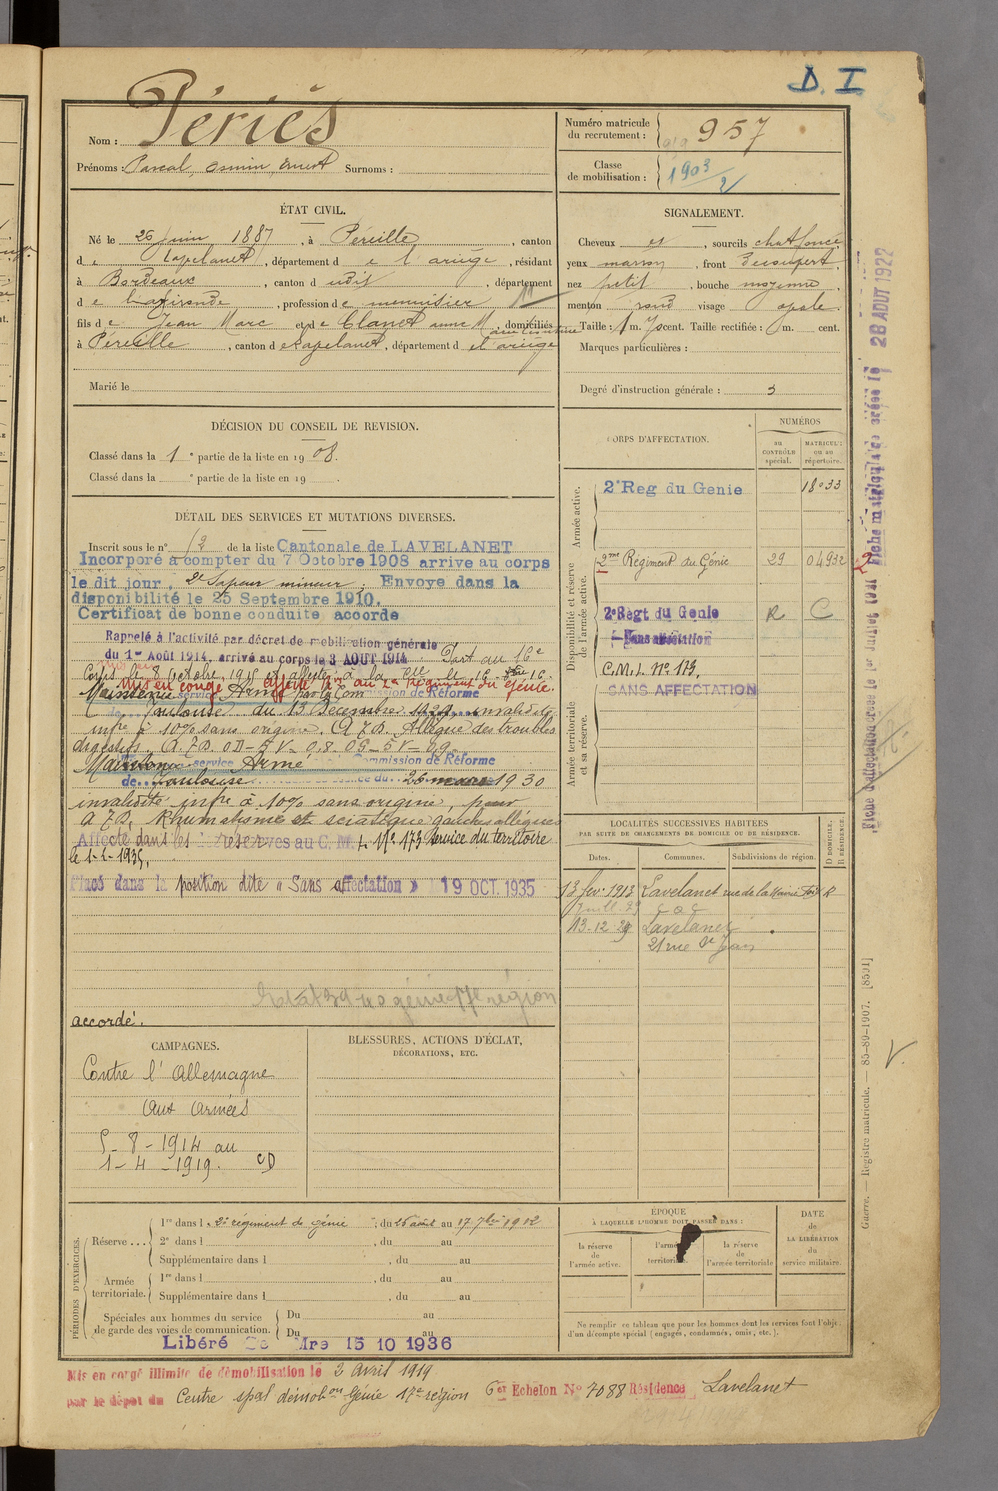 D. I.
Nom : Périès
Prénoms : Pascal, Osmin, Ernest Surnoms :
Numéro matricule du recrutement : 957
Classe de mobilisation : 1903/2
ÉTAT CIVIL.
Né le 26 juin 1887, à Péreille, canton
de Lavelanet, département de l'ariège, résidant
à Bordeaux, canton d udit, département
de la gironde, profession de menuisier
fils de Jean Marc et de Clanet anne M, domiciliés
à Péreille, canton de Lavelanet, département de l'ariège
Marié le
SIGNALEMENT.
Cheveux et, sourcils chat foncé
yeux marron, front découvert
nez petit, bouche moyenne
menton rond visage ovale
Taille : 1 m. 70 cent. Taille rectifiée : m. cent.
Marques particulières :
Degré d'instruction générale : 3
DÉCISION DU CONSEIL DE REVISION.
Classé dans la 1e partie de la liste en 1908.
Classé dans la e partie de la liste en 19
DÉTAIL DES SERVICES ET MUTATIONS DIVERSES.
Inscrit sous le n° 12 de la liste Cantonale de LAVELANET
Incorporé à compter du 7 Octobre 1908 arrive au corps
le dit jour. 2e Sapeur mineur. Envoye dans la
disponibilité le 25 Septembre 1910.
Certificat de bonne conduite accorde
Rappelé à l'activité par décret de mobilisation générale
du 1er Août 1914, arrivé au corps le 3 AOUT 1914 Passé au 16e
Mis en congé affecté au 2e Régiment du Génie.
Maintenu service Armé par la Com de Réforme
Toulouse du 13 Décembre 1929 invalidité
infre à 10% sans origine. A.7.D. Allègue des troubles
digestifs. A.7.D. OD-5 V-0,8. OG-5 V-09
Maintenu service Armé Commission de Réforme
de Toulouse du 26 mars 1930
invalidité infre à 10% sans origine, pour
A 7 D, Rhumatisme et sciatique gauches allégués
Affecté dans les réserves au C.M. I. N° 173 Service du territoire
le 1-1-1935,
Placé dans la position dite « Sans affectation » 19 OCT. 1935
accordé.
CORPS D'AFFECTATION.
NUMÉROS
au CONTRÔLE spécial.
MATRICULE ou au répertoire.
Armée active.
2e Reg du Genie 18033
Disponibilité et réserve de l'armée active.
2me Régiment du Génie 29 04932
2e Régt du Genie R C
Sans affectation
C.M.I. N° 173.
SANS AFFECTATION
Armée territoriale et sa réserve.
LOCALITÉS SUCCESSIVES HABITÉES
PAR SUITE DE CHANGEMENTS DE DOMICILE OU DE RÉSIDENCE.
Dates. Communes. Subdivisions de région. D DOMICILE. R RÉSIDENCE.
13 fév. 1913 Lavelanet rue de la Mairie Foix R
13-12 29 Lavelanet
21 rue St Jean
CAMPAGNES.
Contre l'Allemagne
aux armées
5-8-1914 au
1-4-1919. CD
BLESSURES, ACTIONS D'ÉCLAT,
DÉCORATIONS, ETC.
PÉRIODES D'EXERCICES.
Réserve ...
1re dans l e 2e régiment de génie ; du 26 août au 17 7bre 1912
2e dans l , du au
Supplémentaire dans l , du au
Armée territoriale.
1re dans l , du au
Supplémentaire dans l , du au
Spéciales aux hommes du service de garde des voies de communication.
Du au
Du au
Libéré Mre 15 10 1936
ÉPOQUE
À LAQUELLE L'HOMME DOIT PASSER DANS :
la réserve de l'armée active.
l'armée territoriale
la réserve de l'armée territoriale
DATE de LA LIBÉRATION du service militaire.
Ne remplir ce tableau que pour les hommes dont les services font l'objet
d'un décompte spécial (engagés, condamnés, omis, etc.).
Mis en congé illimité de démobilisation le 2 Avril 1919
par le dépôt du Centre spal démobon Génie 17e région 6e Echelon N° 7088 Résidence Lavelanet
Fiche matricule créée le 28 AOUT 1922
Guerre. — Registre matricule. — 85-89-1907. [8591]